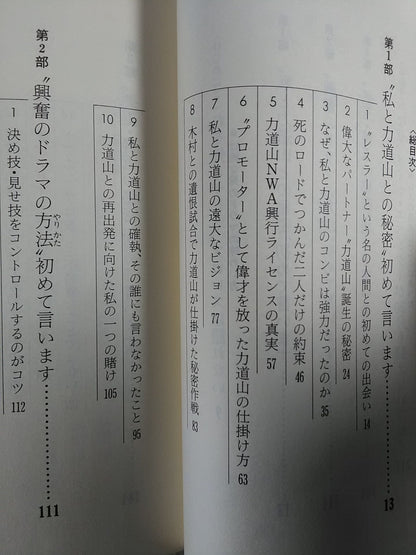 〈総目次〉
第1部 〝私と力道山との秘密〟初めて言います…………13
1 〝レスラー〟という名の人間との初めての出会い 14
2 偉大なパートナー〝力道山〟誕生の秘密 24
3 なぜ、私と力道山のコンビは強力だったのか 35
4 死のロードでつかんだ二人だけの約束 46
5 力道山NWA興行ライセンスの真実 57
6 〝プロモーター〟として偉才を放った力道山の仕掛け方 63
7 私と力道山の遠大なビジョン 77
8 木村との遺恨試合で力道山が仕掛けた秘密作戦 83
9 私と力道山との確執、その誰にも言わなかったこと 95
10 力道山との再出発に向けた私の一つの賭け 105
第2部 〝興奮のドラマの方法〟初めて言います…………111
やりかた
1 決め技・見せ技をコントロールするのがコツ 112